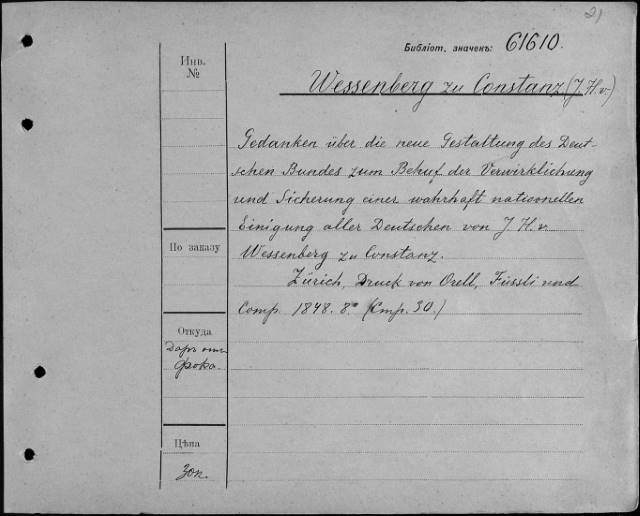 21
Библіот. значекъ: 61610.
Инв.
№
Wessenberg zu Constanz (J. H. v.
Gedanken über die neue Gestaltung des Deut-
schen Bundes zum Behuf der Verwirklichung
und Sicherung einer wahrhaft nationellen
Einigung aller Deutschen von J. H. v.
Wessenberg zu Constanz.
Zürich, Druck von Orell, Füssli und
Comp. 1848. 8° (Стр. 30.)
По заказу
Откуда
Даръ отъ
Фока.
Цѣна
30к.